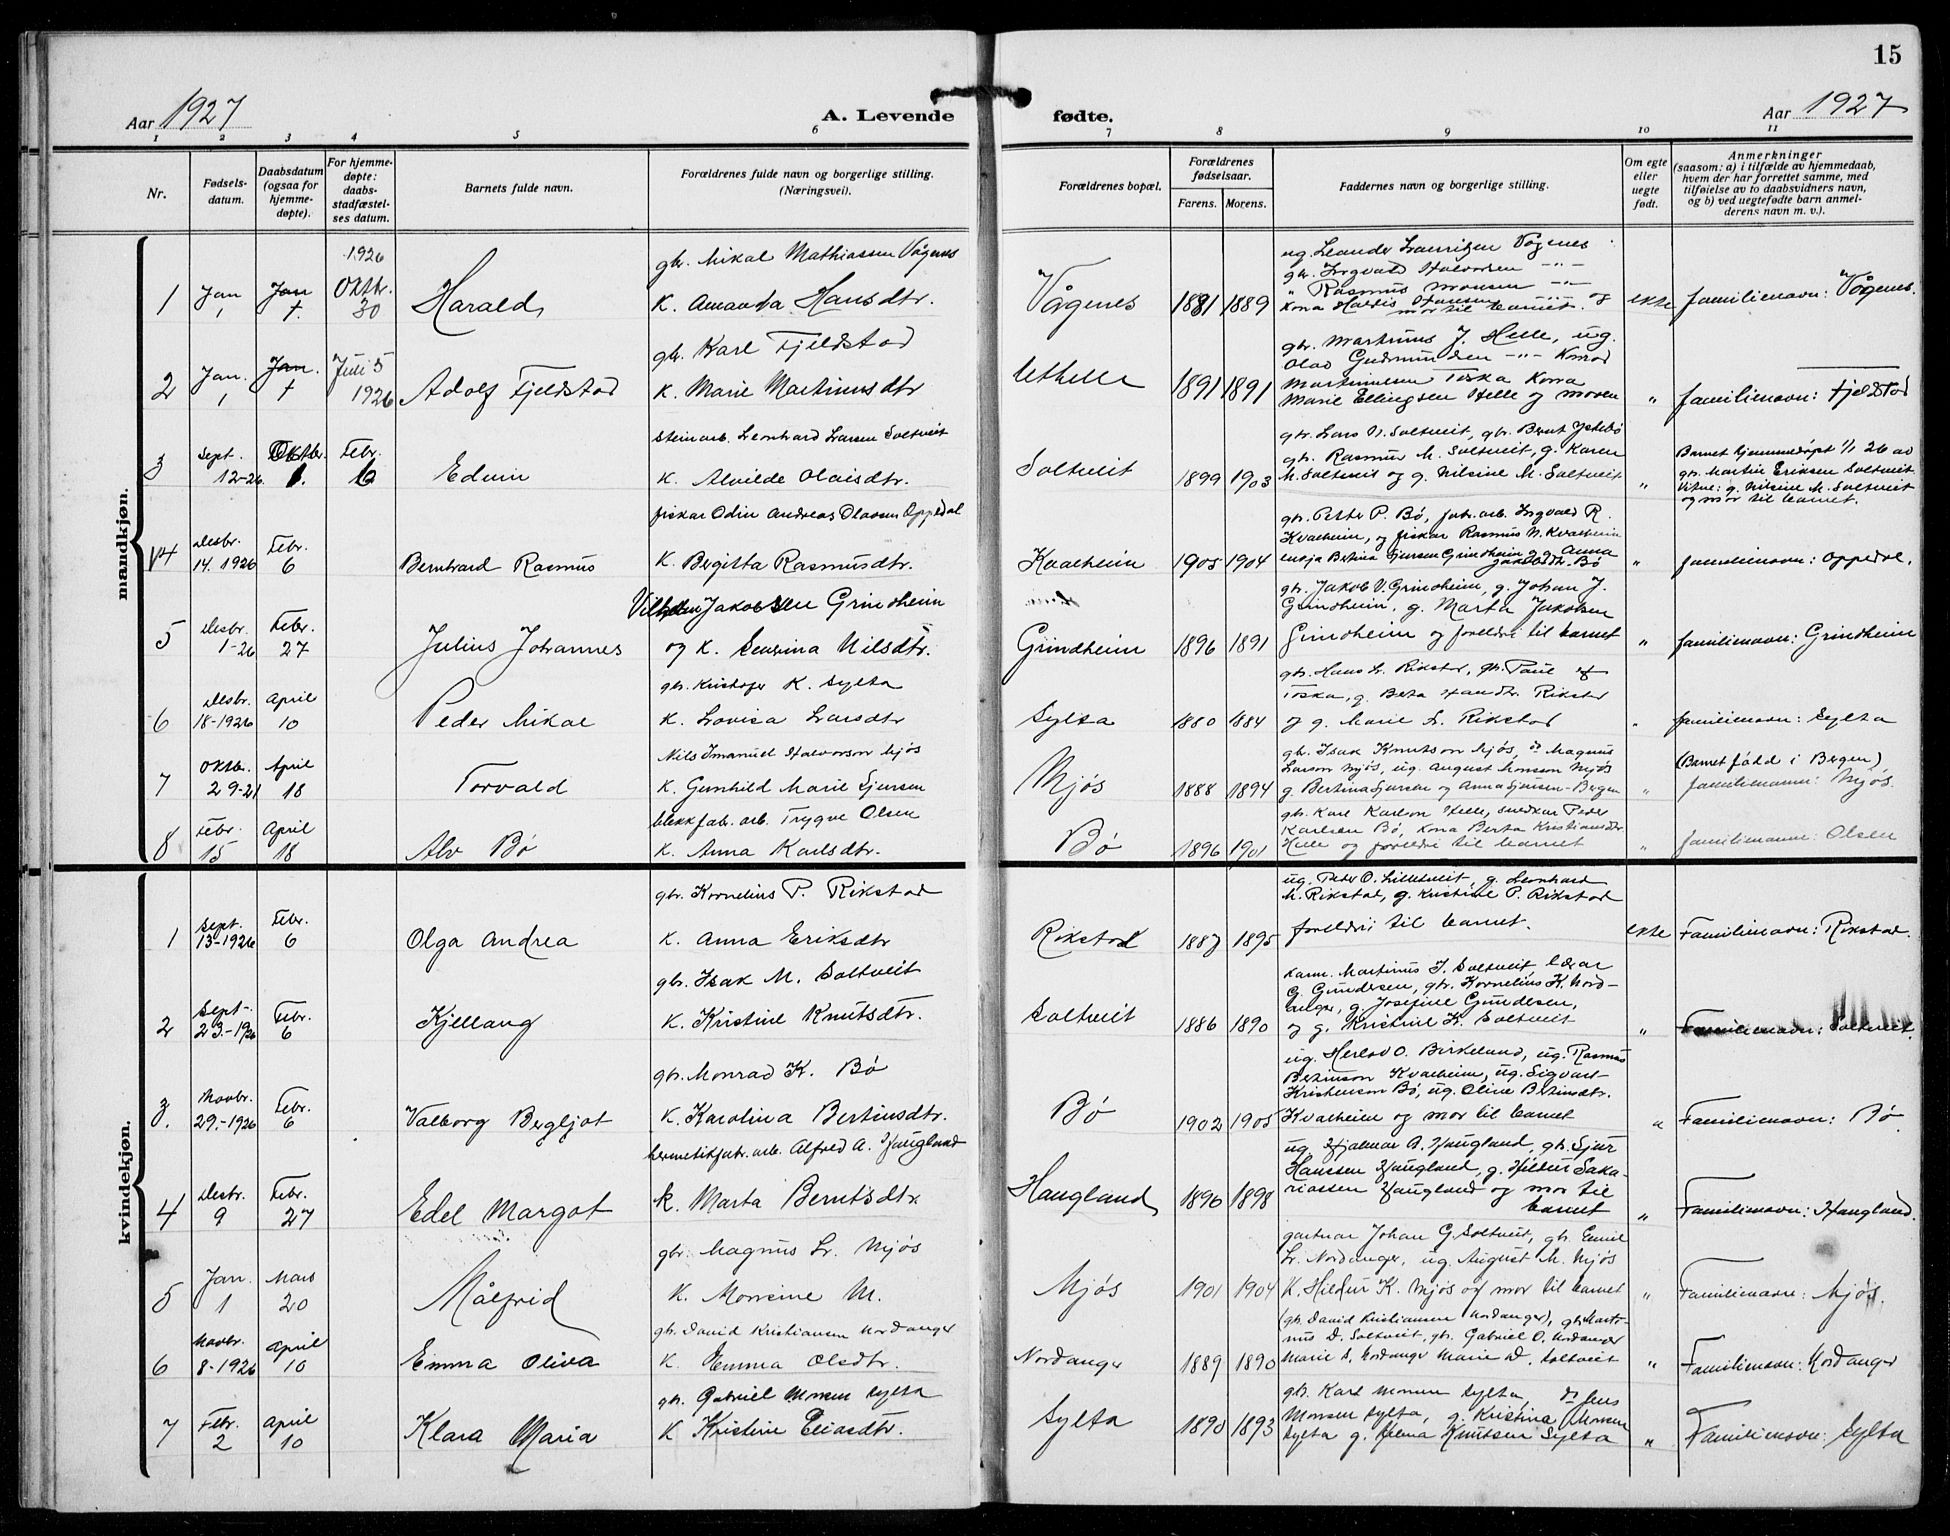 15
Aar 1927
A. Levende
fødte.
Aar 1927
1 2 3 4 5 6 7 8 9 10 11
Nr.
Fødsels-
datum.
Daabsdatum
(ogsaa for
hjemme-
døpte).
For hjemme-
døpte:
daabs-
stadfæstel-
ses datum.
Barnets fulde navn.
Forældrenes fulde navn og borgerlige stilling.
(Næringsvei).
Forældrenes bopæl.
Forældrenes
fødselsaar.
Farens. Morens.
Faddernes navn og borgerlige stilling.
Om egte
eller
uegte
født.
Anmerkninger
(saasom: a) i tilfælde av hjemmedaab,
hvem der har forrettet samme, med
tilføielse av to daabsvidners navn,
og b) ved uegtefødte barn anmel-
derens navn m. v.).
mandkjøn.
1 Jan 1 Jan + 1926 Oktbr. 30 Harald
gbr. Mikal Mathiassen Vågenes
K. Amanda Hansdtr.
Vågenes 1881 1889
ug. Leander Lauritzen Vågenes
gbr. Ingvald Halvorsen -"-
" Rasmus Monsen -"-
Kona Hansen og
mor til barnet.
ekte familienavn: Vågenes.
2 Jan. 1 Jan. + Juli 5 1926 Adolf Fjeldstad
gbr. Karl Fjeldstad
K. Marie Martinusdtr
Uthelle 1891 1891
gbr. Martinus J. Helle, ug.
Olav Gudmundsen -"- Konrad
Martinussen Toska Kona
Marie Ellingsen Helle og moren
" familienavn: Fjeldstad
3 Sept. 12-26 Oktbr. 1. Febr. 16 Edvin
steinarb. Leonhard Larsen Soltveit
K. Alvilde Olaisdtr.
Soltveit 1899 1903
gbr. Lars N. Soltveit, gbr. Bernt
gbr. Rasmus M. Soltveit, g. Karen
M. Soltveit og g. Nilsine M. Soltveit
" Barnet hjemmedøpt 1/1 26 av
gbr. Martin Eriksen Soltveit.
Vitne: g. Nilsine M. Soltveit
og mor til barnet.
4 Desbr. 14. 1926 Febr. 6 Bernhard Rasmus
fiskar Odin Andreas Olavsen Oppedal
K. Bergitta Rasmusdtr.
Kvalheim 1905 1904
gbr. Petter P. Bø, fabr. arb. Ingvald R.
Kvalheim, og fiskar Rasmus N. Kvalheim
enkja Betina Sjursen Grindheim og g. Anna
Jakobsdtr. Bø
" familienavn: Oppedal.
5 Desbr. 1-26 Febr. 27 Julius Johannes
Vilhelm Jakobsen Grindheim
og K. Severina Nilsdtr.
Grindheim 1896 1891
gbr. Jakob V. Grindheim, g. Johan J.
Grindheim, g. Marta Jakobsen
Grindheim og foreldri til barnet
" familienavn: Grindheim
6 Desbr. 18-1926 April 10 Peder Mikal
gbr. Kristofer K. Sylta
K. Lovisa Larsdtr
Sylta 1880 1884
gbr. Hans L. Rikstad, gbr. Paul
Toska, g. Berta Hansdtr Rikstad
og g. Marie L. Rikstad
" familienavn: Sylta
7 Oktbr. 29-21 April 18 Torvald
Nils Imanuel Halvorsen Mjøs
K. Gunhild Marie Sjursen
Mjøs 1888 1894
gbr. Isak Knutsen Mjøs, do Magnus
Larson Mjøs, ug. August Monsson Mjøs
g. Bertina Sjursen og Anna Sjursen-Bergen
" (Barnet født i Bergen)
familienamn: Mjøs.
8 Febr. 15 April 18 Alv Bø
blekkfab. arb. Trygve Olsen
K. Anna Karlsdtr.
Bø 1896 1901
gbr. Karl Karlson Helle, snedkar Peder
Karlsen Bø, Kona Berta Kristiansdtr
Helle og foreldri til barnet
" familienamn: Olsen
kvindekjøn.
1 Sept. 13-1926 Febr. 6 Olga Andrea
gbr. Kornelius P. Rikstad
K. Anna Eriksdtr
Rikstad 1887 1895
ug. Peder O. Litletveit, g. Leonhard
M. Rikstad, g. Kristine P. Rikstad
foreldri til barnet.
ekte Familienavn: Rikstad.
2 Sept- 23.-1926 Febr. 6 Kjellaug
gbr. Isak M. Soltveit
K. Kristine Knutsdtr.
Soltveit 1886 1890
Martinus J. Soltveit lærar
G. Gundersen, gbr. Kornelius K. Nord-
anger, g. Josefine Gundersen,
og g. Kristine K. Soltveit
" Familienavn: Soltveit.
3. Novbr. 29.-1926 Febr. 6 Valborg Bergljot
gbr. Monrad K. Bø
K. Karolina Bertinsdtr.
Bø 1902 1905
ug. Herlov O. Birkeland, ug. Rasmus
Bertinson Kvalheim, ug. Sigvart
Kristenson Bø, ug. Oline Bertinsdtr.
Kvalheim og mor til barnet
" Familienavn: Bø
4 Desbr. 9 Febr. 27 Edel Margot
hermetikfabr. arb. Alfred A. Haugland
k. Marta Berntsdtr.
Haugland 1890 1898
ug. Hjalmar A. Haugland, gbr. Sjur
Hanssen Haugland, g. Hildur Saka-
riassen Haugland og mor til
barnet
" Familienavn: Haugland.
5 Jan. 1 Mars 20 Målfrid
gbr. Magnus L. Mjøs
K. Monsine M.
Mjøs 1901 1904
gartnar Johan G. Soltveit, gbr. Emil
L. Nordanger, ug. August M. Mjøs
K. Hildur K. Mjøs og mor til barnet
" Familienavn: Mjøs.
6 Novbr. 8-1926 April 10 Emma Oliva
gbr. David Kristiansen Nordanger
K. Emma Olsdtr.
Nordanger 1889 1890
(gbr. David Kristiansen Nordanger), gbr. Marti-
nus D. Soltveit, gbr. Gabriel O. Nordanger
Marie S. Nordanger Marie D. Soltveit
" Familienavn: Nordanger
7 Febr. 2 April 10 Klara Maria
gbr. Gabriel Monsen Sylta
K Kristine Eliasdtr.
Sylta 1890 1893
gbr. Karl Monsen Sylta, do Jens
Monsen Sylta, g. Kristina Monsen
Sylta g. Selma Knutsen Sylta
" Familienavn: Sylta